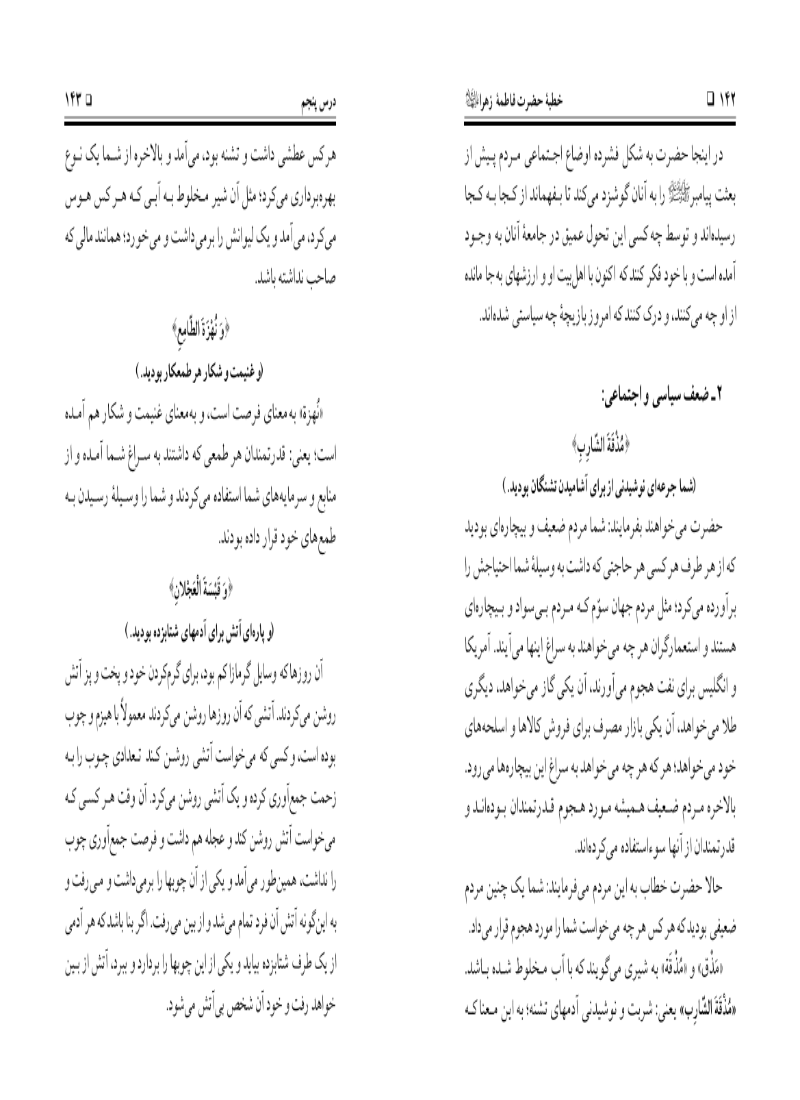 ۱۴۲ ❑ خطبهٔ حضرت فاطمهٔ زهرا
در اینجا حضرت به شکل فشرده اوضاع اجتماعی مردم پیش از
بعثت پیامبر را به آنان گوشزد می‌کند تا بفهماند از کجا به کجا
رسیده‌اند و توسط چه کسی این تحول عمیق در جامعهٔ آنان به وجود
آمده است و با خود فکر کنند که اکنون با اهل‌بیت او و ارزشهای به‌جا مانده
از او چه می‌کنند، و درک کنند که امروز بازیچهٔ چه سیاستی شده‌اند.
۲ـ ضعف سیاسی و اجتماعی:
﴿مُذْقَةَ الشَّارِبِ﴾
(شما جرعه‌ای نوشیدنی از برای آشامیدن تشنگان بودید.)
حضرت می‌خواهند بفرمایند: شما مردم ضعیف و بیچاره‌ای بودید
که از هر طرف هر کسی هر حاجتی که داشت به وسیلهٔ شما احتیاجش را
برآورده می‌کرد؛ مثل مردم جهان سوّم که مردم بی‌سواد و بیچاره‌ای
هستند و استعمارگران هر چه می‌خواهند به سراغ اینها می‌آیند. آمریکا
و انگلیس برای نفت هجوم می‌آورند، آن یکی گاز می‌خواهد، دیگری
طلا می‌خواهد، آن یکی بازار مصرف برای فروش کالاها و اسلحه‌های
خود می‌خواهد؛ هر که هر چه می‌خواهد به سراغ این بیچاره‌ها می‌رود.
بالاخره مردم ضعیف همیشه مورد هجوم قدرتمندان بوده‌اند و
قدرتمندان از آنها سوءاستفاده می‌کرده‌اند.
حالا حضرت خطاب به این مردم می‌فرمایند: شما یک چنین مردم
ضعیفی بودید که هر کس هر چه می‌خواست شما را مورد هجوم قرار می‌داد.
«مَذْق» و «مُذْقَة» به شیری می‌گویند که با آب مخلوط شده باشد.
«مُذْقَةَ الشَّارِب» یعنی: شربت و نوشیدنی آدمهای تشنه؛ به این معنا که
درس پنجم ❑ ۱۴۳
هر کس عطشی داشت و تشنه بود، می‌آمد و بالاخره از شما یک نوع
بهره‌برداری می‌کرد؛ مثل آن شیر مخلوط به آبی که هر کس هوس
می‌کرد، می‌آمد و یک لیوانش را برمی‌داشت و می‌خورد؛ همانند مالی که
صاحب نداشته باشد.
﴿وَ نُهْزَةَ الطَّامِعِ﴾
(و غنیمت و شکار هر طمعکار بودید.)
«نُهزة» به معنای فرصت است، و به‌معنای غنیمت و شکار هم آمده
است؛ یعنی: قدرتمندان هر طمعی که داشتند به سراغ شما آمده و از
منابع و سرمایه‌های شما استفاده می‌کردند و شما را وسیلهٔ رسیدن به
طمع‌های خود قرار داده بودند.
﴿وَ قَبْسَةَ الْعَجْلانِ﴾
(و پاره‌ای آتش برای آدمهای شتابزده بودید.)
آن روزها که وسایل گرمازا کم بود، برای گرم‌کردن خود و پخت و پز آتش
روشن می‌کردند. آتشی که آن روزها روشن می‌کردند معمولاً با هیزم و چوب
بوده است، و کسی که می‌خواست آتشی روشن کند تعدادی چوب را به
زحمت جمع‌آوری کرده و یک آتشی روشن می‌کرد. آن وقت هر کسی که
می‌خواست آتش روشن کند و عجله هم داشت و فرصت جمع‌آوری چوب
را نداشت، همین‌طور می‌آمد و یکی از آن چوبها را برمی‌داشت و می‌رفت و
به این‌گونه آتش آن فرد تمام می‌شد و از بین می‌رفت. اگر بنا باشد که هر آدمی
از یک طرف شتابزده بیاید و یکی از این چوبها را بردارد و ببرد، آتش از بین
خواهد رفت و خود آن شخص بی‌آتش می‌شود.